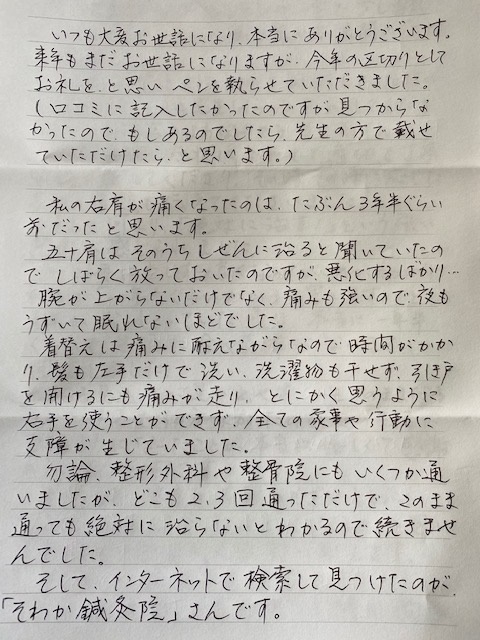 いつも大変お世話になり、本当にありがとうございます。
来年もまだお世話になりますが、今年の区切りとして
お礼を、と思い ペンを執らせていただきました。
(口コミに記入したかったのですが 見つからな
かったので、もしあるのでしたら、先生の方で載せ
ていただけたら、と思います。)
私の右肩が痛くなったのは、たぶん3年半ぐらい
前だったと思います。
五十肩は そのうちしぜんに治ると聞いていたの
で しばらく放っておいたのですが、悪化するばかり…
腕が上がらないだけでなく、痛みも強いので、夜も
うずいて眠れないほどでした。
着替えは痛みに耐えながらなので時間がかか
り、髪も左手だけで洗い、洗濯物も干せず、引き戸
を開けるにも痛みが走り、とにかく思うように
右手を使うことができず、全ての家事や行動に
支障が生じていました。
勿論、整形外科や整骨院にもいくつか通
いましたが、どこも2、3回通っただけで、このまま
通っても絶対に治らないとわかるので続きませ
んでした。
そして、インターネットで検索して見つけたのが、
「そわか鍼灸院」さんです。